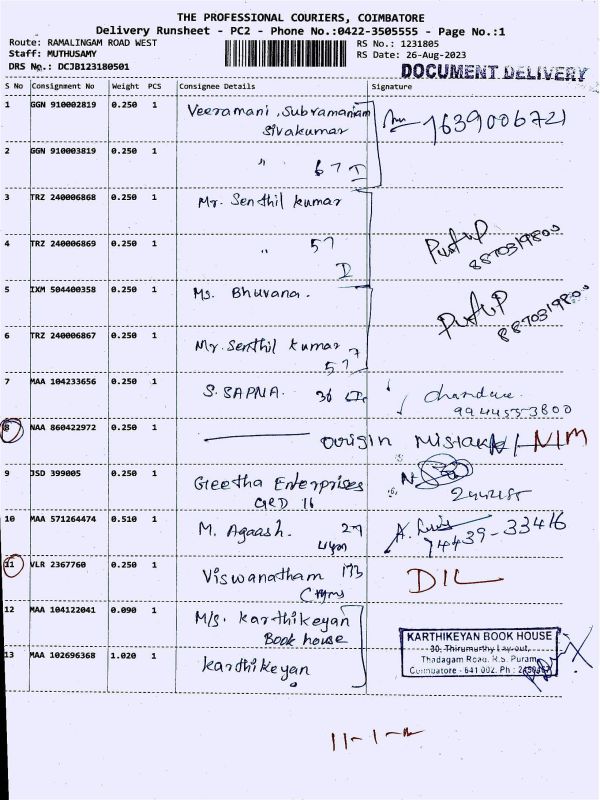 THE PROFESSIONAL COURIERS, COIMBATORE
Delivery Runsheet - PC2 - Phone No.:0422-3505555 - Page No.:1
Route: RAMALINGAM ROAD WEST RS No.: 1231805
Staff: MUTHUSAMY RS Date: 26-Aug-2023
DRS No.: DCJB123180501
DOCUMENT DELIVERY
S No Consignment No Weight PCS Consignee Details Signature
1 GGN 910002819 0.250 1 Veeramani, Subramaniam
Sivakumar
2 GGN 910003819 0.250 1 " 67 I
3 TRZ 240006868 0.250 1 Mr. Senthil kumar
4 TRZ 240006869 0.250 1 " 57
I
5 IXM 504400358 0.250 1 Ms. Bhuvana.
6 TRZ 240006867 0.250 1 Mr. Senthil kumar
577
7 MAA 104233656 0.250 1 S. SAPNA. 36
9944553800
8 NAA 860422972 0.250 1 origin Mistake / NIM
9 JSD 399005 0.250 1 Geetha Enterprises
GRD 16
10 MAA 571264474 0.510 1 M. Agaash. 27
74439-33416
11 VLR 2367760 0.250 1 Viswanatham 173 DIL
12 MAA 104122041 0.090 1 M/s. Karthikeyan
Book house
13 MAA 102696368 1.020 1 Karthikeyan
KARTHIKEYAN BOOK HOUSE
30, Thirumurthy Lay-out,
Thadagam Road, R.S. Puram,
Coimbatore - 641 002. Ph :